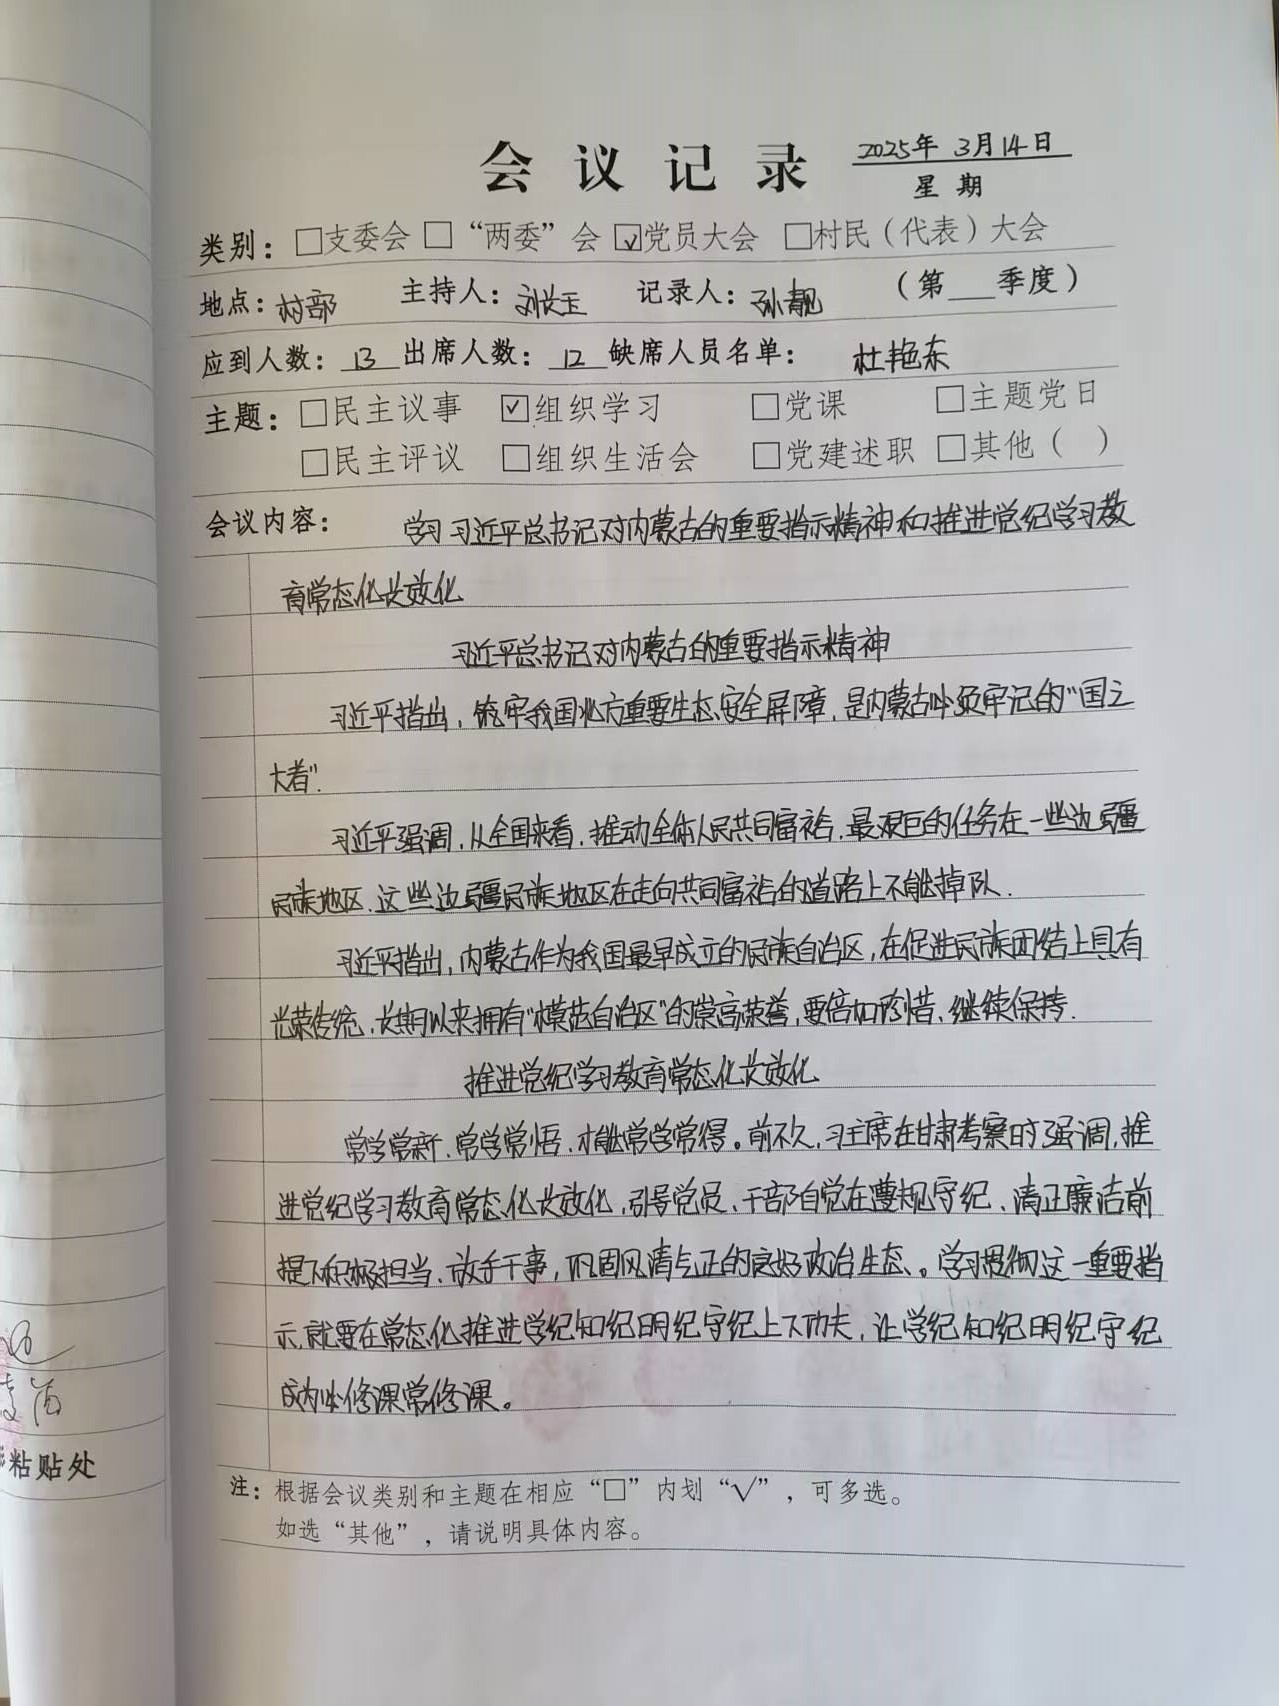 会议记录 2025年 3月14日
星期
类别：□支委会 □“两委”会 ☑党员大会 □村民（代表）大会
地点：村部 主持人：刘长玉 记录人：孙靓 （第___季度）
应到人数：13 出席人数：12 缺席人员名单：杜艳东
主题：□民主议事 ☑组织学习 □党课 □主题党日
□民主评议 □组织生活会 □党建述职 □其他（ ）
会议内容： 学习习近平总书记对内蒙古的重要指示精神和推进党纪学习教
育常态化长效化
习近平总书记对内蒙古的重要指示精神
习近平指出，筑牢我国北方重要生态安全屏障，是内蒙古必须牢记的“国之
大者”.
习近平强调，从全国来看，推动全体人民共同富裕，最艰巨的任务在一些边疆
民族地区.这些边疆民族地区在走向共同富裕的道路上不能掉队.
习近平指出，内蒙古作为我国最早成立的民族自治区，在促进民族团结上具有
光荣传统，长期以来拥有“模范自治区”的崇高荣誉，要倍加珍惜、继续保持.
推进党纪学习教育常态化长效化
常学常新、常学常悟，才能常学常得。前不久，习主席在甘肃考察时强调，推
进党纪学习教育常态化长效化，引导党员、干部自觉在遵规守纪、清正廉洁前
提下积极担当、放手干事，巩固风清气正的良好政治生态。学习贯彻这一重要指
示，就要在常态化推进学纪知纪明纪守纪上下功夫，让学纪知纪明纪守纪
成为必修课常修课。
注：根据会议类别和主题在相应“□”内划“√”，可多选。
如选“其他”，请说明具体内容。
粘贴处